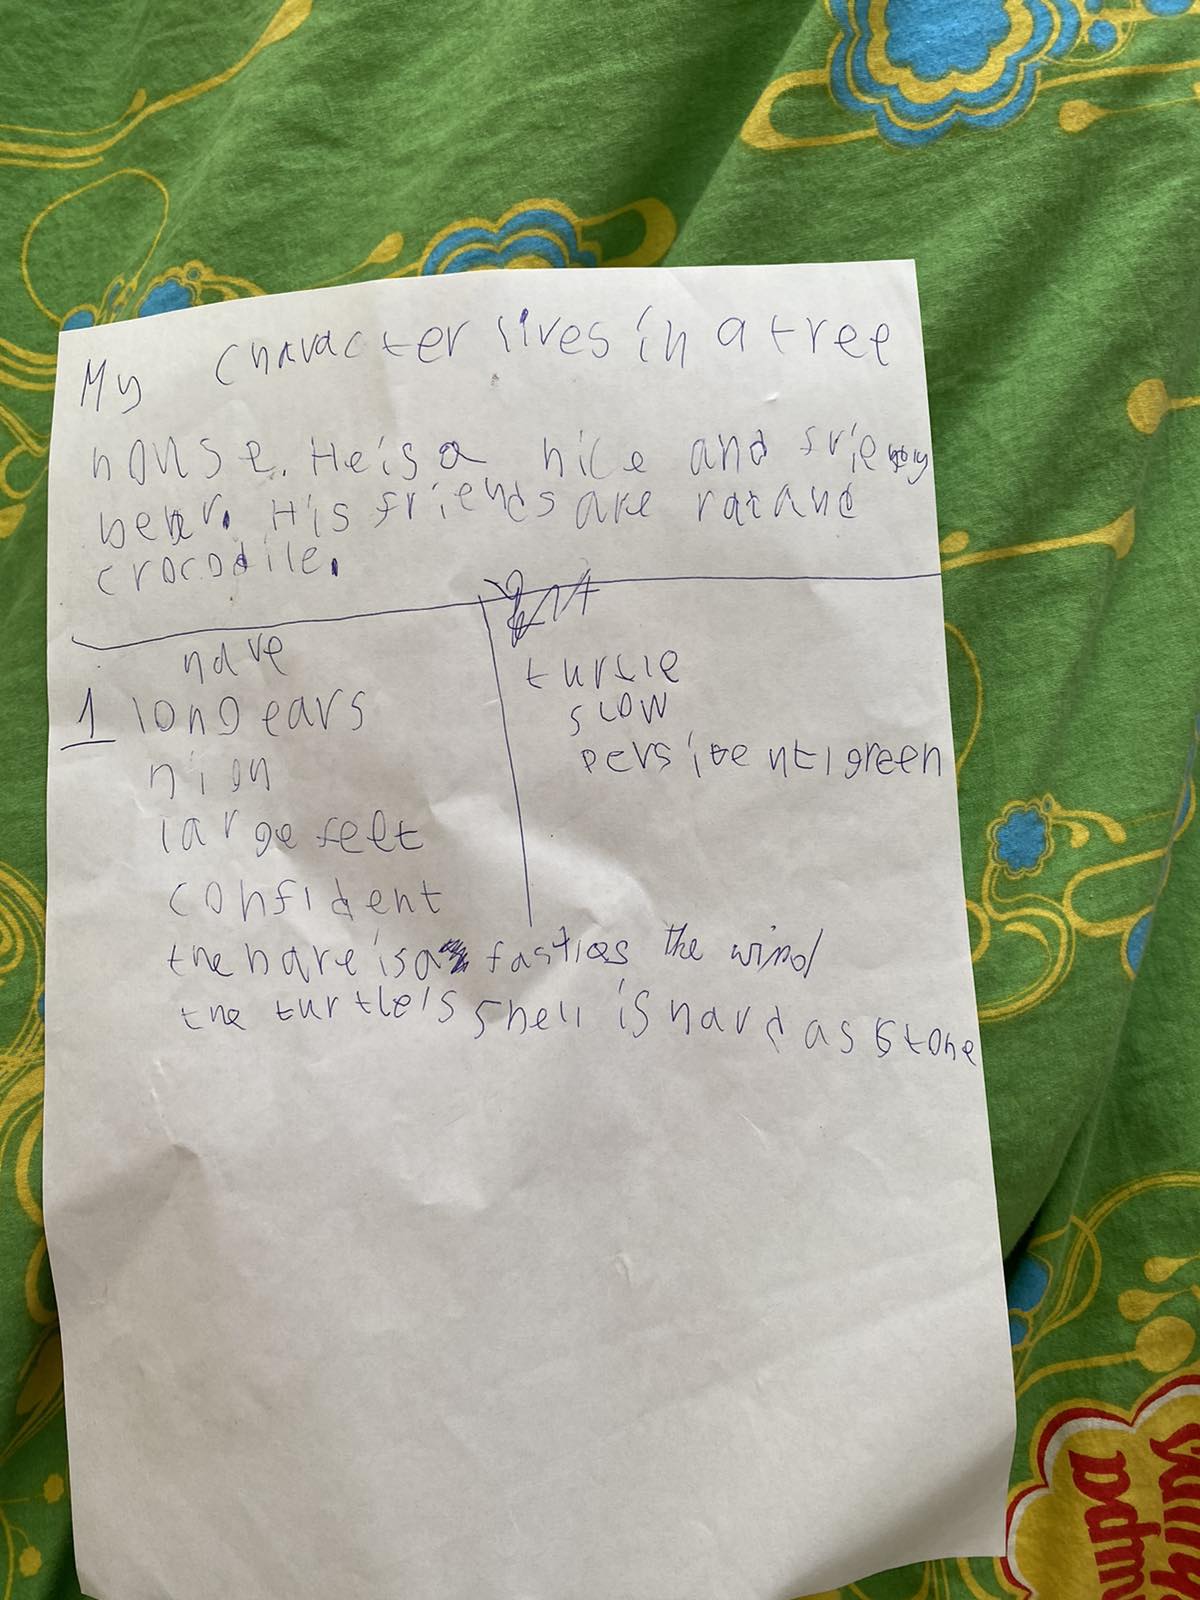 My character lives in a tree
house. He is a nice and friendly
bear. His friends are rat and
crocodile.
hare
1 long ears
high
large feet
confident
turtle
slow
persistent green
the hare is as fast as the wind
the turtle's shell is hard as stone